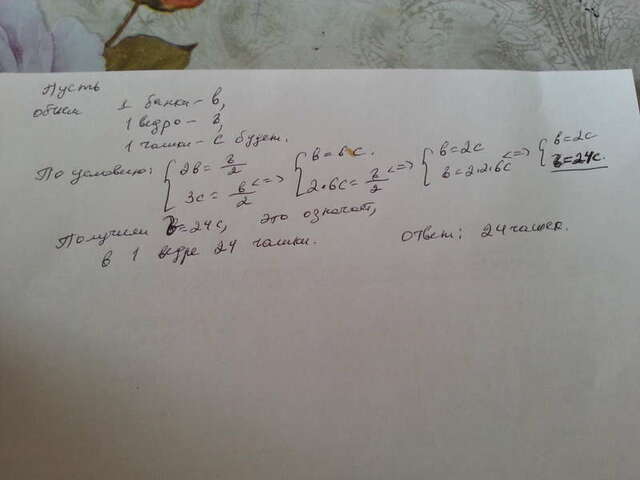 Пусть
объем 1 банки – b,
1 ведро – z,
1 чашки – c будет.
По условию: { 2b = z/2 ; 3c = b/2 <=> { b = 6c. ; 2·6c = z/2 <=> { b = 2c ; b = 2·2·6c <=> { b = 2c ; z = 24c.
Получили z = 24c, это означает,
в 1 ведре 24 чашки. ответ: 24 чашек.